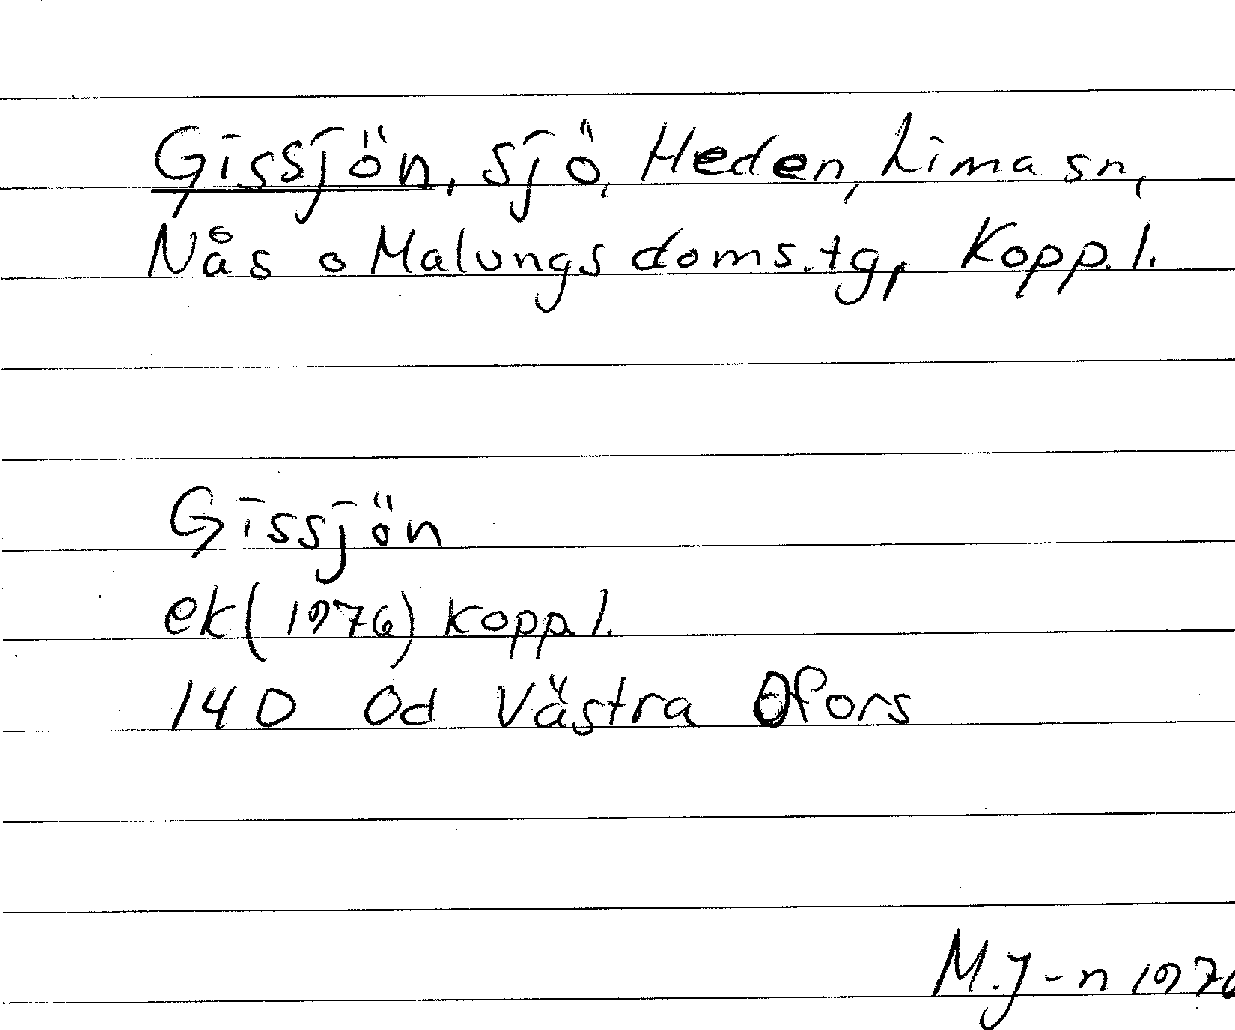 Gissjön, sjö, Heden, Lima sn,
Nås o Malungs doms.tg, Kopp.l.
Gissjön
ek (1976) Kopp.l.
14D 0d Västra Ofors
M.J-n 1976